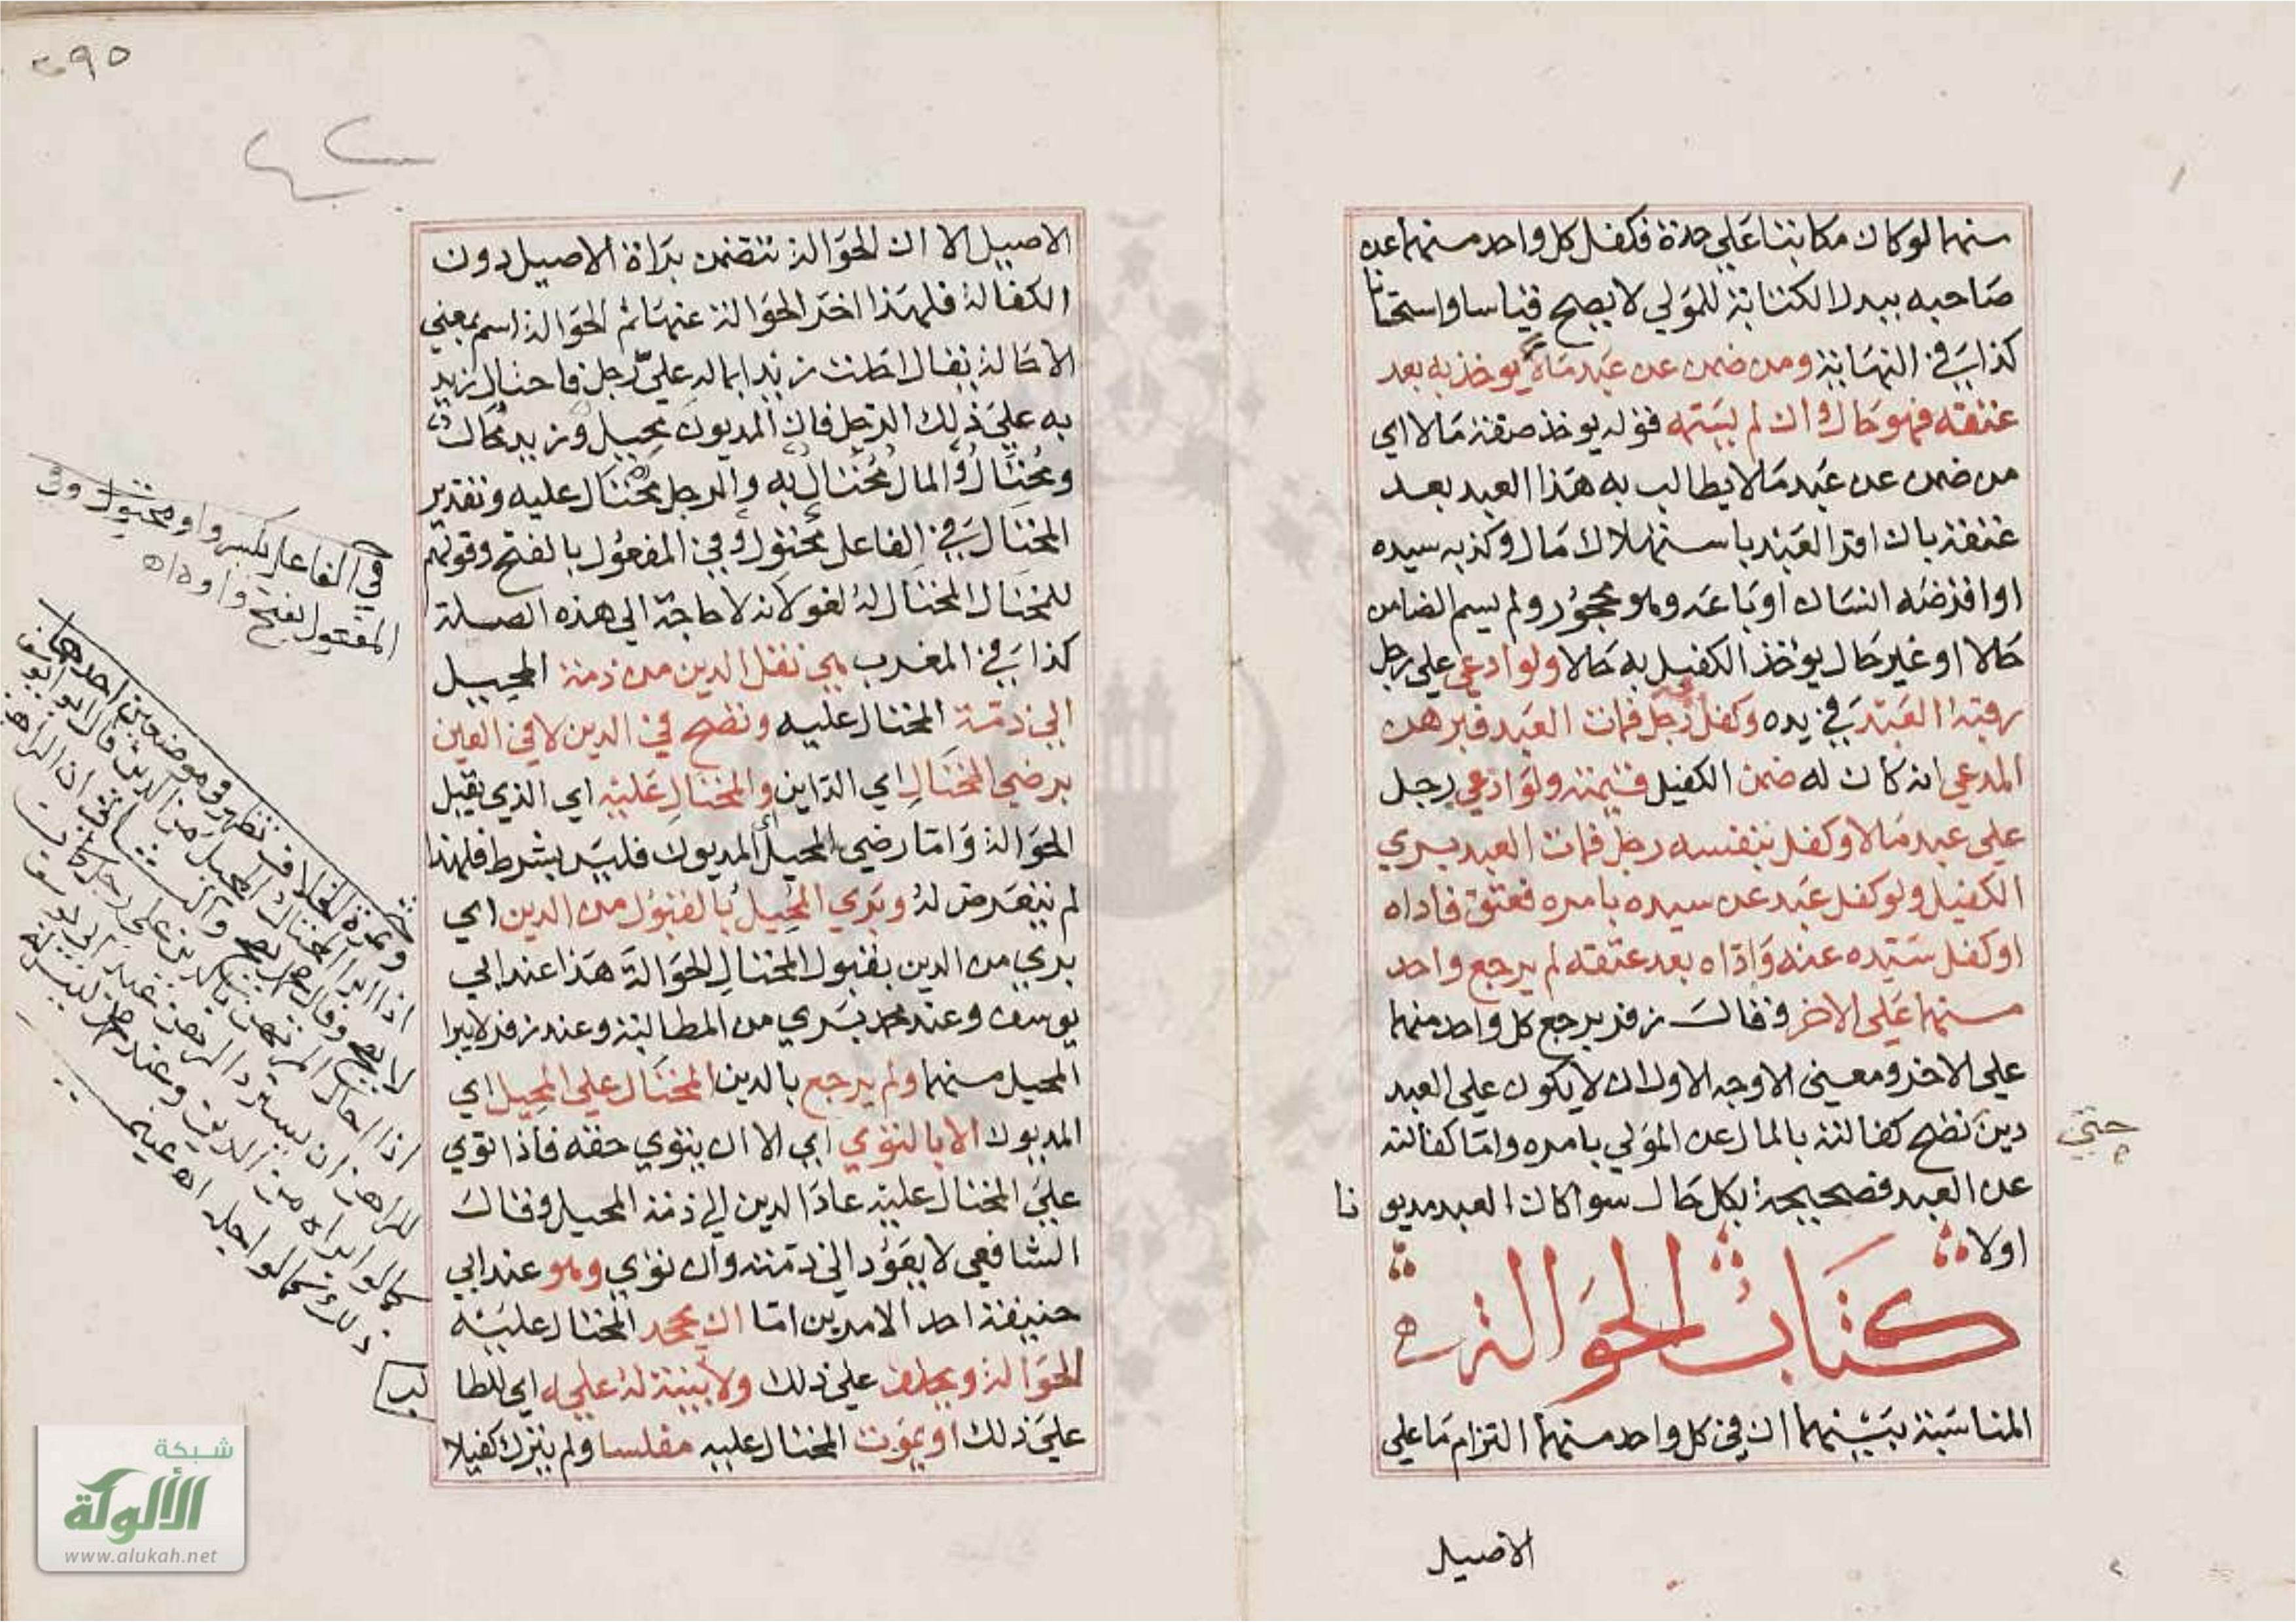 منهما لو كان مكاتبتا علي حدة فكفل كل واحد منهما عن
صاحبه ببدل الكتابة للمولي لا يصح قياسا واستحسانا
كذا في النهاية ومن ضمن عن عبد مالا يوخذ به بعد
عتقه فهو حال وان لم يسمه قوله يوخذ صفة مالا اي
من ضمن عن عبد مالا يطالب به هذا العبد بعد
عتقه بان اقر العبد باستهلاك مال وكذبه سيده
او اقرضه انسان او باعه وهو محجور ولم يسم الضامن
حالا او غير حال يؤخذ الكفيل به حالا ولو ادعي علي رجل
رقبة العبد في يده وكفل رجل فمات العبد فبرهن
المدعي انه كان له ضمن الكفيل قيمته ولو ادعي رجل
علي عبد مالا وكفل بنفسه رجل فمات العبد بري
الكفيل ولو كفل عبد عن سيده بامره فعتق فاداه
او كفل سيده عنه واداه بعد عتقه لم يرجع واحد
منهما علي الاخر وقال زفر يرجع كل واحد منهما
علي الاخر ومعني الاوجه الاول ان لا يكون علي العبد
دين تصح كفالته بالمال عن المولي بامره واما كفالته
حتي
عن العبد فصحيحة بكل حال سوا كان العبد مديونا
اولا
كتاب الحوالة
المناسبة بينهما ان في كل واحد منهما التزام ما علي
الاصيل
٢٩٥
الاصيل الا ان الحوالة تتضمن براة الاصيل دون
الكفالة فلهذا اخر الحوالة عنها ثم الحوالة اسم بمعني
الاحالة يقال احلت زيدا بماله علي رجل فاحتال زيد
به علي ذلك الرجل فان المديون محيل وزيد محال
ومحتال والمال محتال به والرجل محتال عليه وتقدير
المحتال في الفاعل محتول وفي المفعول بالفتح وقولهم
للمحتال المحتال له لغو لانه لا حاجة الي هذه الصلة
كذا في المغرب هي نقل الدين من ذمة المحيل
الي ذمة المحتال عليه وتصح في الدين لا في العين
برضي المحتال اي الداين والمحتال عليه اي الذي يقبل
الحوالة واما رضي المحيل اي المديون فليس بشرط فلهذا
لم يتعرض له وبري المحيل بالقبول من الدين اي
بري من الدين بقبول المحتال الحوالة هذا عند ابي
يوسف وعند محمد بري من المطالبة وعند زفر لا يبرا
المحيل منهما ولم يرجع بالدين المحتال علي المحيل اي
المديون الا بالتوي اي الا ان يتوي حقه فاذا توي
علي المحتال عليه عاد الدين الي ذمة المحيل وقال
الشافعي لا يعود الي ذمته وان توي وهو عند ابي
حنيفة احد الامرين اما ان يجحد المحتال عليه
الحوالة ويحلف علي ذلك ولا بينة له عليه اي للطالب
علي ذلك او يموت المحتال عليه مفلسا ولم يترك كفيلا
في الفاعل بكسر واو محتول وفي
المفعول بفتح واوه اه
وثمرة الخلاف تظهر في موضعين احدهما
اذا ابرا المحتال المحيل من الدين قال ابو يوسف
لا يصح وقال محمد يصح والثاني ان الراهن
اذا احال المرتهن بالدين علي رجل كان
للراهن ان يسترد الرهن عند ابي يوسف
كما لو ابراه من الدين وعند محمد ليس له
ذلك كما لو اجله اه عيني
شبكة
الألوكة
www.alukah.net